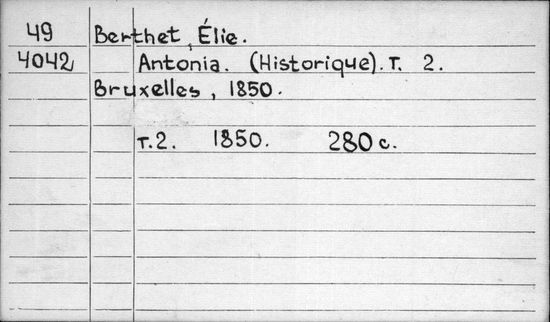 49 Berthet, Élie.
4042 Antonia. (Historique). т. 2.
Bruxelles, 1850.
т.2. 1850. 280 с.